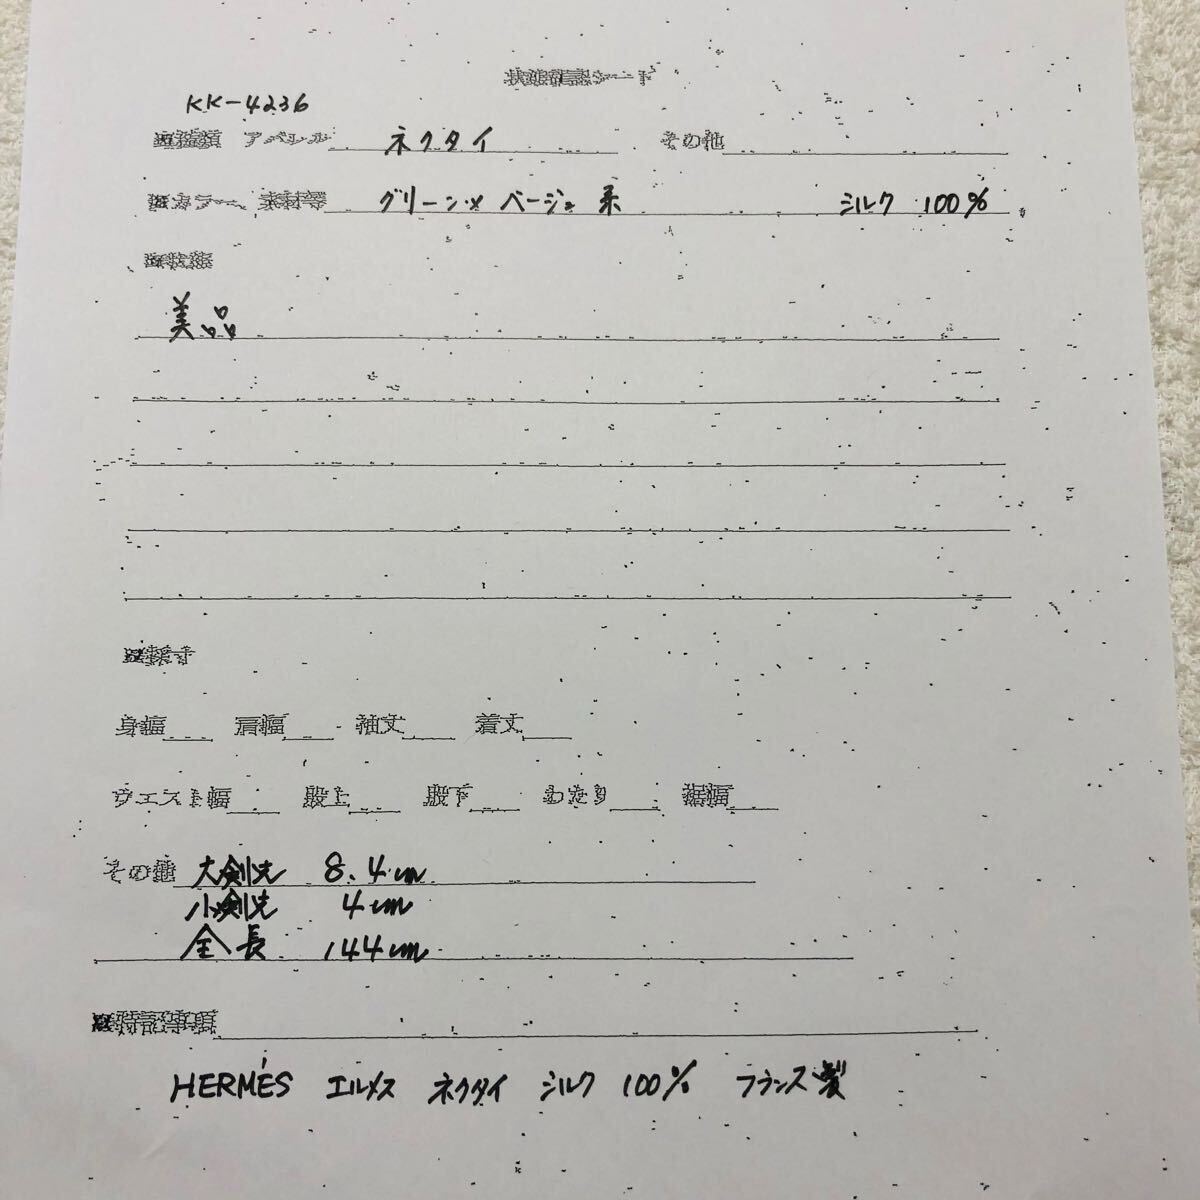 状態確認シート
KK-4236
種類 アパレル ネクタイ その他
カラー、素材等 グリーン×ベージュ系 シルク 100%
状態
美品
採寸
身幅 肩幅 袖丈 着丈
ウエスト幅 股上 股下 わたり 裾幅
その他 大剣先 8.4cm
小剣先 4cm
全長 144cm
特記事項
HERMÈS エルメス ネクタイ シルク 100% フランス製